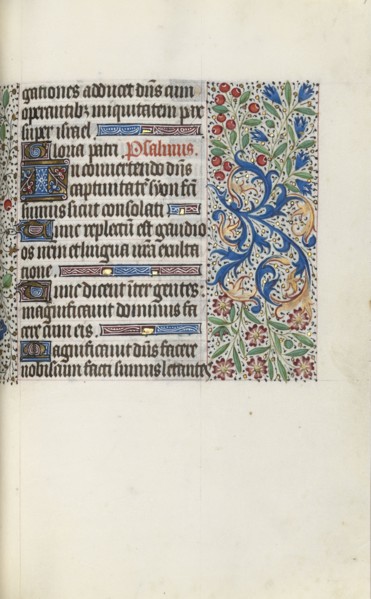 gationes adducet dn̄s cum
operantib; iniquitatem pax
super israel
Gloria patri Psalmus
In convertendo dn̄s
captivitatē syon fcī
sumus sicut consolati
Tunc repletū est gaudio
os nr̄m et lingua nr̄a exulta
tione.
Tunc dicent īter gentes:
magnificavit dominus fa
cere cum eis.
Magnificavit dn̄s facere
nobiscum facti sumus letantes